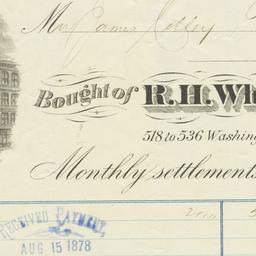 Mr James
Bought of R. H. Wh
518 to 536 Washing
Monthly settlements
RECEIVED PAYMENT,
AUG 15 1878